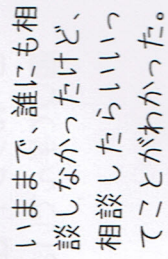 いままで、誰にも相
談しなかったけど、
相談したらいいっ
てことがわかった。